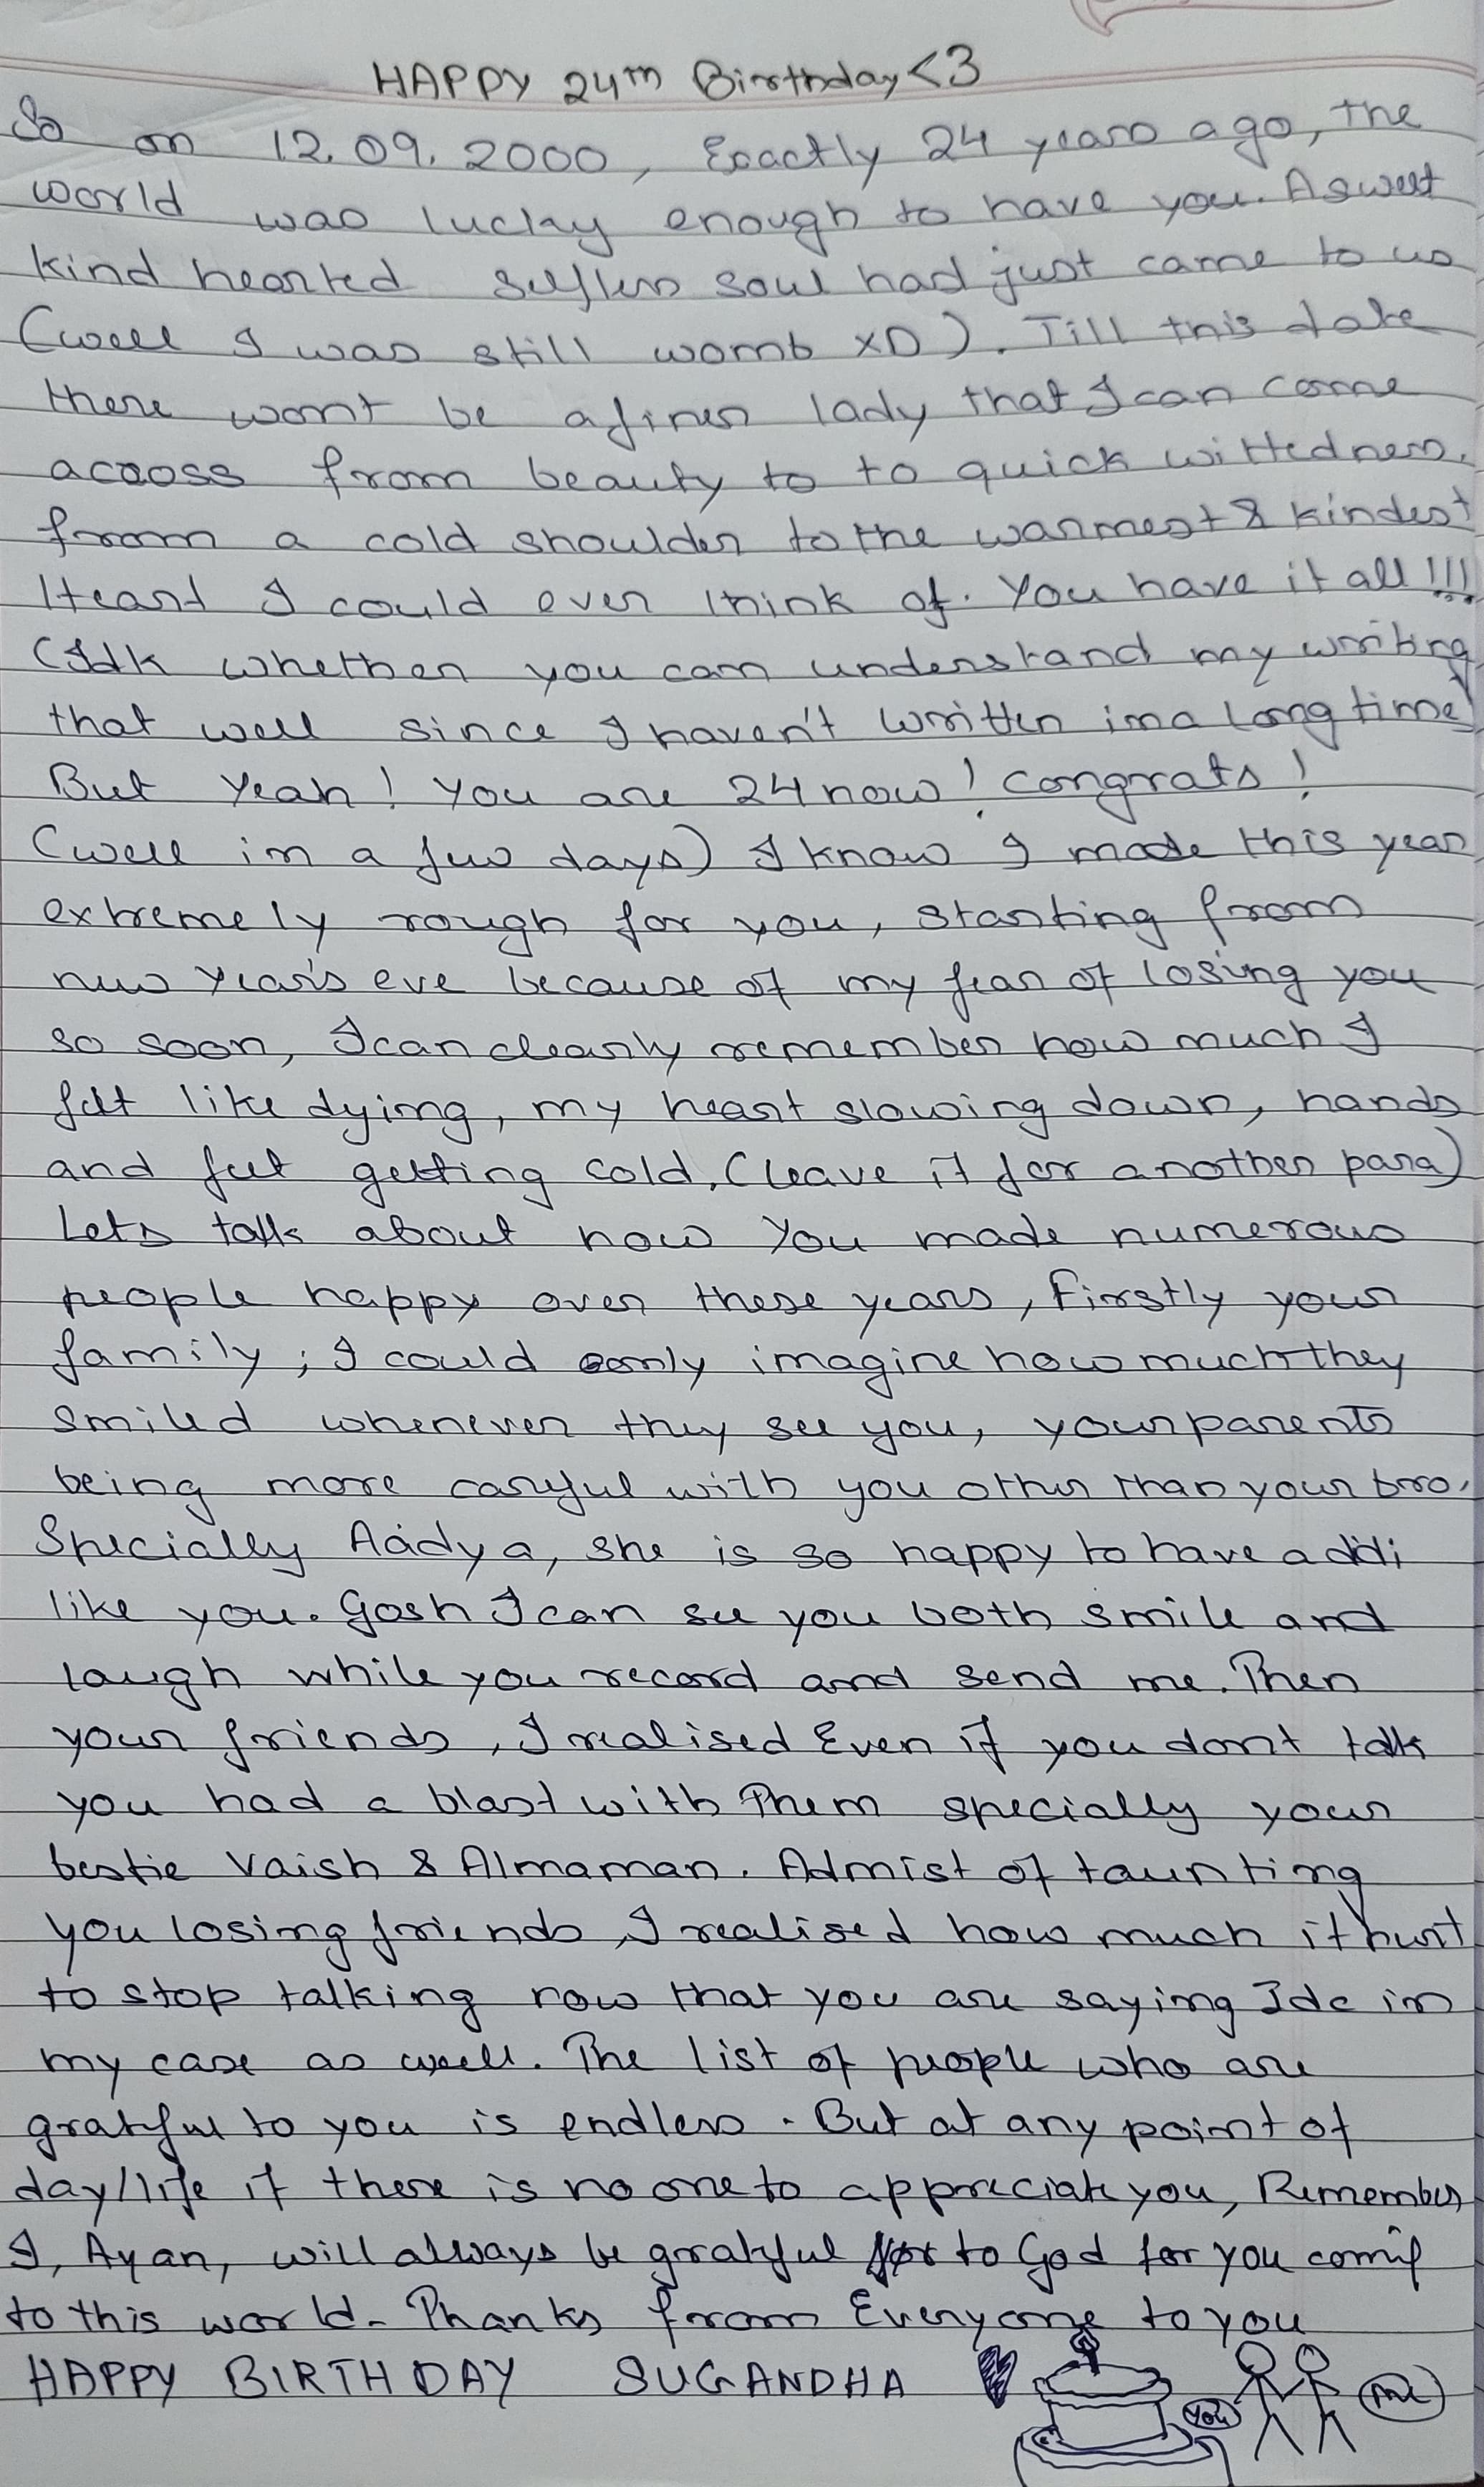 HAPPY 24th Birthday <3
So on 12.09.2000, Exactly 24 years ago, the
world was lucky enough to have you. A sweet
kind hearted selfless soul had just came to us
(well I was still womb xD). Till this date
there wont be a finer lady that I can come
across from beauty to to quick wittedness.
from a cold shoulder to the warmest & kindest
Heart I could ever think of. You have it all!!!
(Idk whether you can understand my writing
that well since I haven't written in a long time)
But Yeah! You are 24 now! Congrats!
(well in a few days) I know I made this year
extremely rough for you, starting from
new year's eve because of my fear of losing you
so soon, I can clearly remember how much I
felt like dying, my heart slowing down, hands
and feet getting cold. (leave it for another para)
Lets talk about how You made numerous
people happy over these years, Firstly your
family; I could only imagine how much they
smiled whenever they see you, your parents
being more careful with you other than your bro.
Specially Aadya, she is so happy to have a didi
like you. Gosh I can see you both smile and
laugh while you record and send me. Then
your friends, I realised Even if you dont talk
you had a blast with Them specially your
bestie Vaish & Almaman. Admist of taunting
you losing friends, I realised how much it hurt
to stop talking now that you are saying Idc in
my case as well. The list of people who are
grateful to you is endless. But at any point of
day/life if there is no one to appreciate you, Remember
I, Ayan, will always be grateful to God for you coming
to this world. Thanks from Everyone to you
HAPPY BIRTHDAY SUGANDHA
You
Me